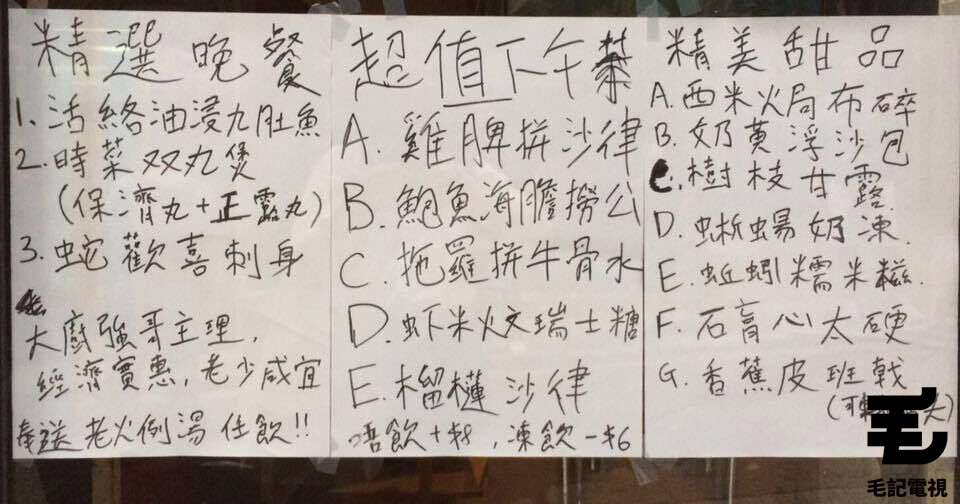 精選晚餐
1. 活絡油浸九肚魚
2. 時菜双丸煲
(保濟丸+正露丸)
3. 蛇歡喜刺身
大廚強哥主理,
經濟實惠,老少咸宜
奉送老火例湯任飲!!
超值下午茶
A. 雞脾拼沙律
B. 鮑魚海膽撈公
C. 拖羅拼牛骨水
D. 虾米炆瑞士糖
E. 榴槤沙律
唔飲+$8,凍飲-$6
精美甜品
A. 西米火局布碎
B. 奶黄浮沙包
C. 樹枝甘露
D. 蜥蜴奶凍
E. 蚯蚓糯米糍
F. 石膏心太硬
G. 香蕉皮班戟
毛
毛記電視